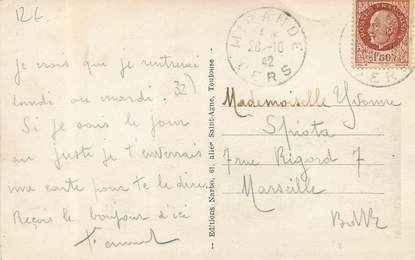 126
je crois que je rentrerai
lundi ou mardi.
32)
Si je sais le jour
au juste je t'enverrais
une carte pour te le dire.
Reçois le bonjour d'ici
Editions Narbo, 61, allée Saint-Agne, Toulouse
MIRANDE
26-10
42
GERS
POSTES FRANÇAISES
1F50
GERS
Mademoiselle Yvonne
7 rue Rigord 7
Marseille